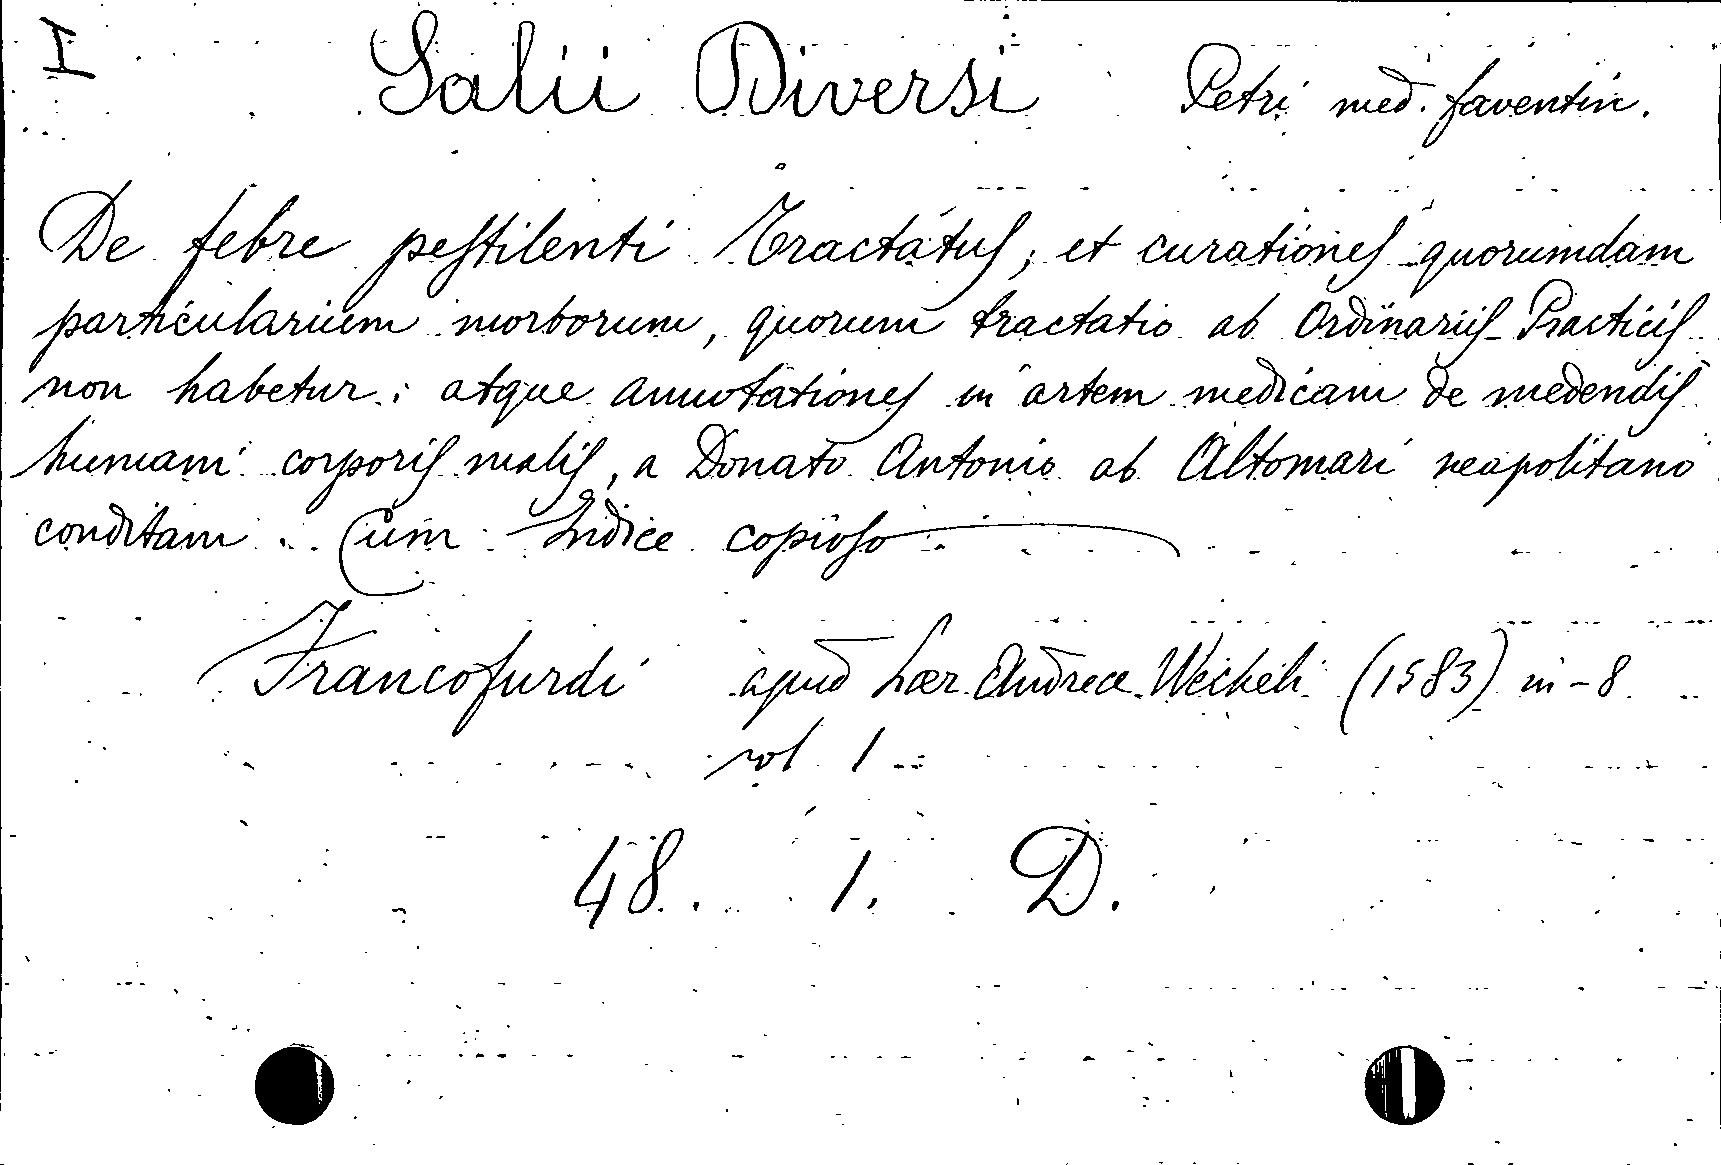 I
Salii Diversi Petri med. faventin.
De febre pestilenti Tractatus, et curationes quorumdam
particularium morborum, quorum tractatio ab Ordinariis Practicis
non habetur: atque annotationes in artem medicam de medendis
humani corporis malis, a Donato Antonio ab Altomari neapolitano
conditam. Cum Indice copioso
Francofurdi apud hær. Andreæ Wecheli (1583) in-8
vol 1
48. 1. D.